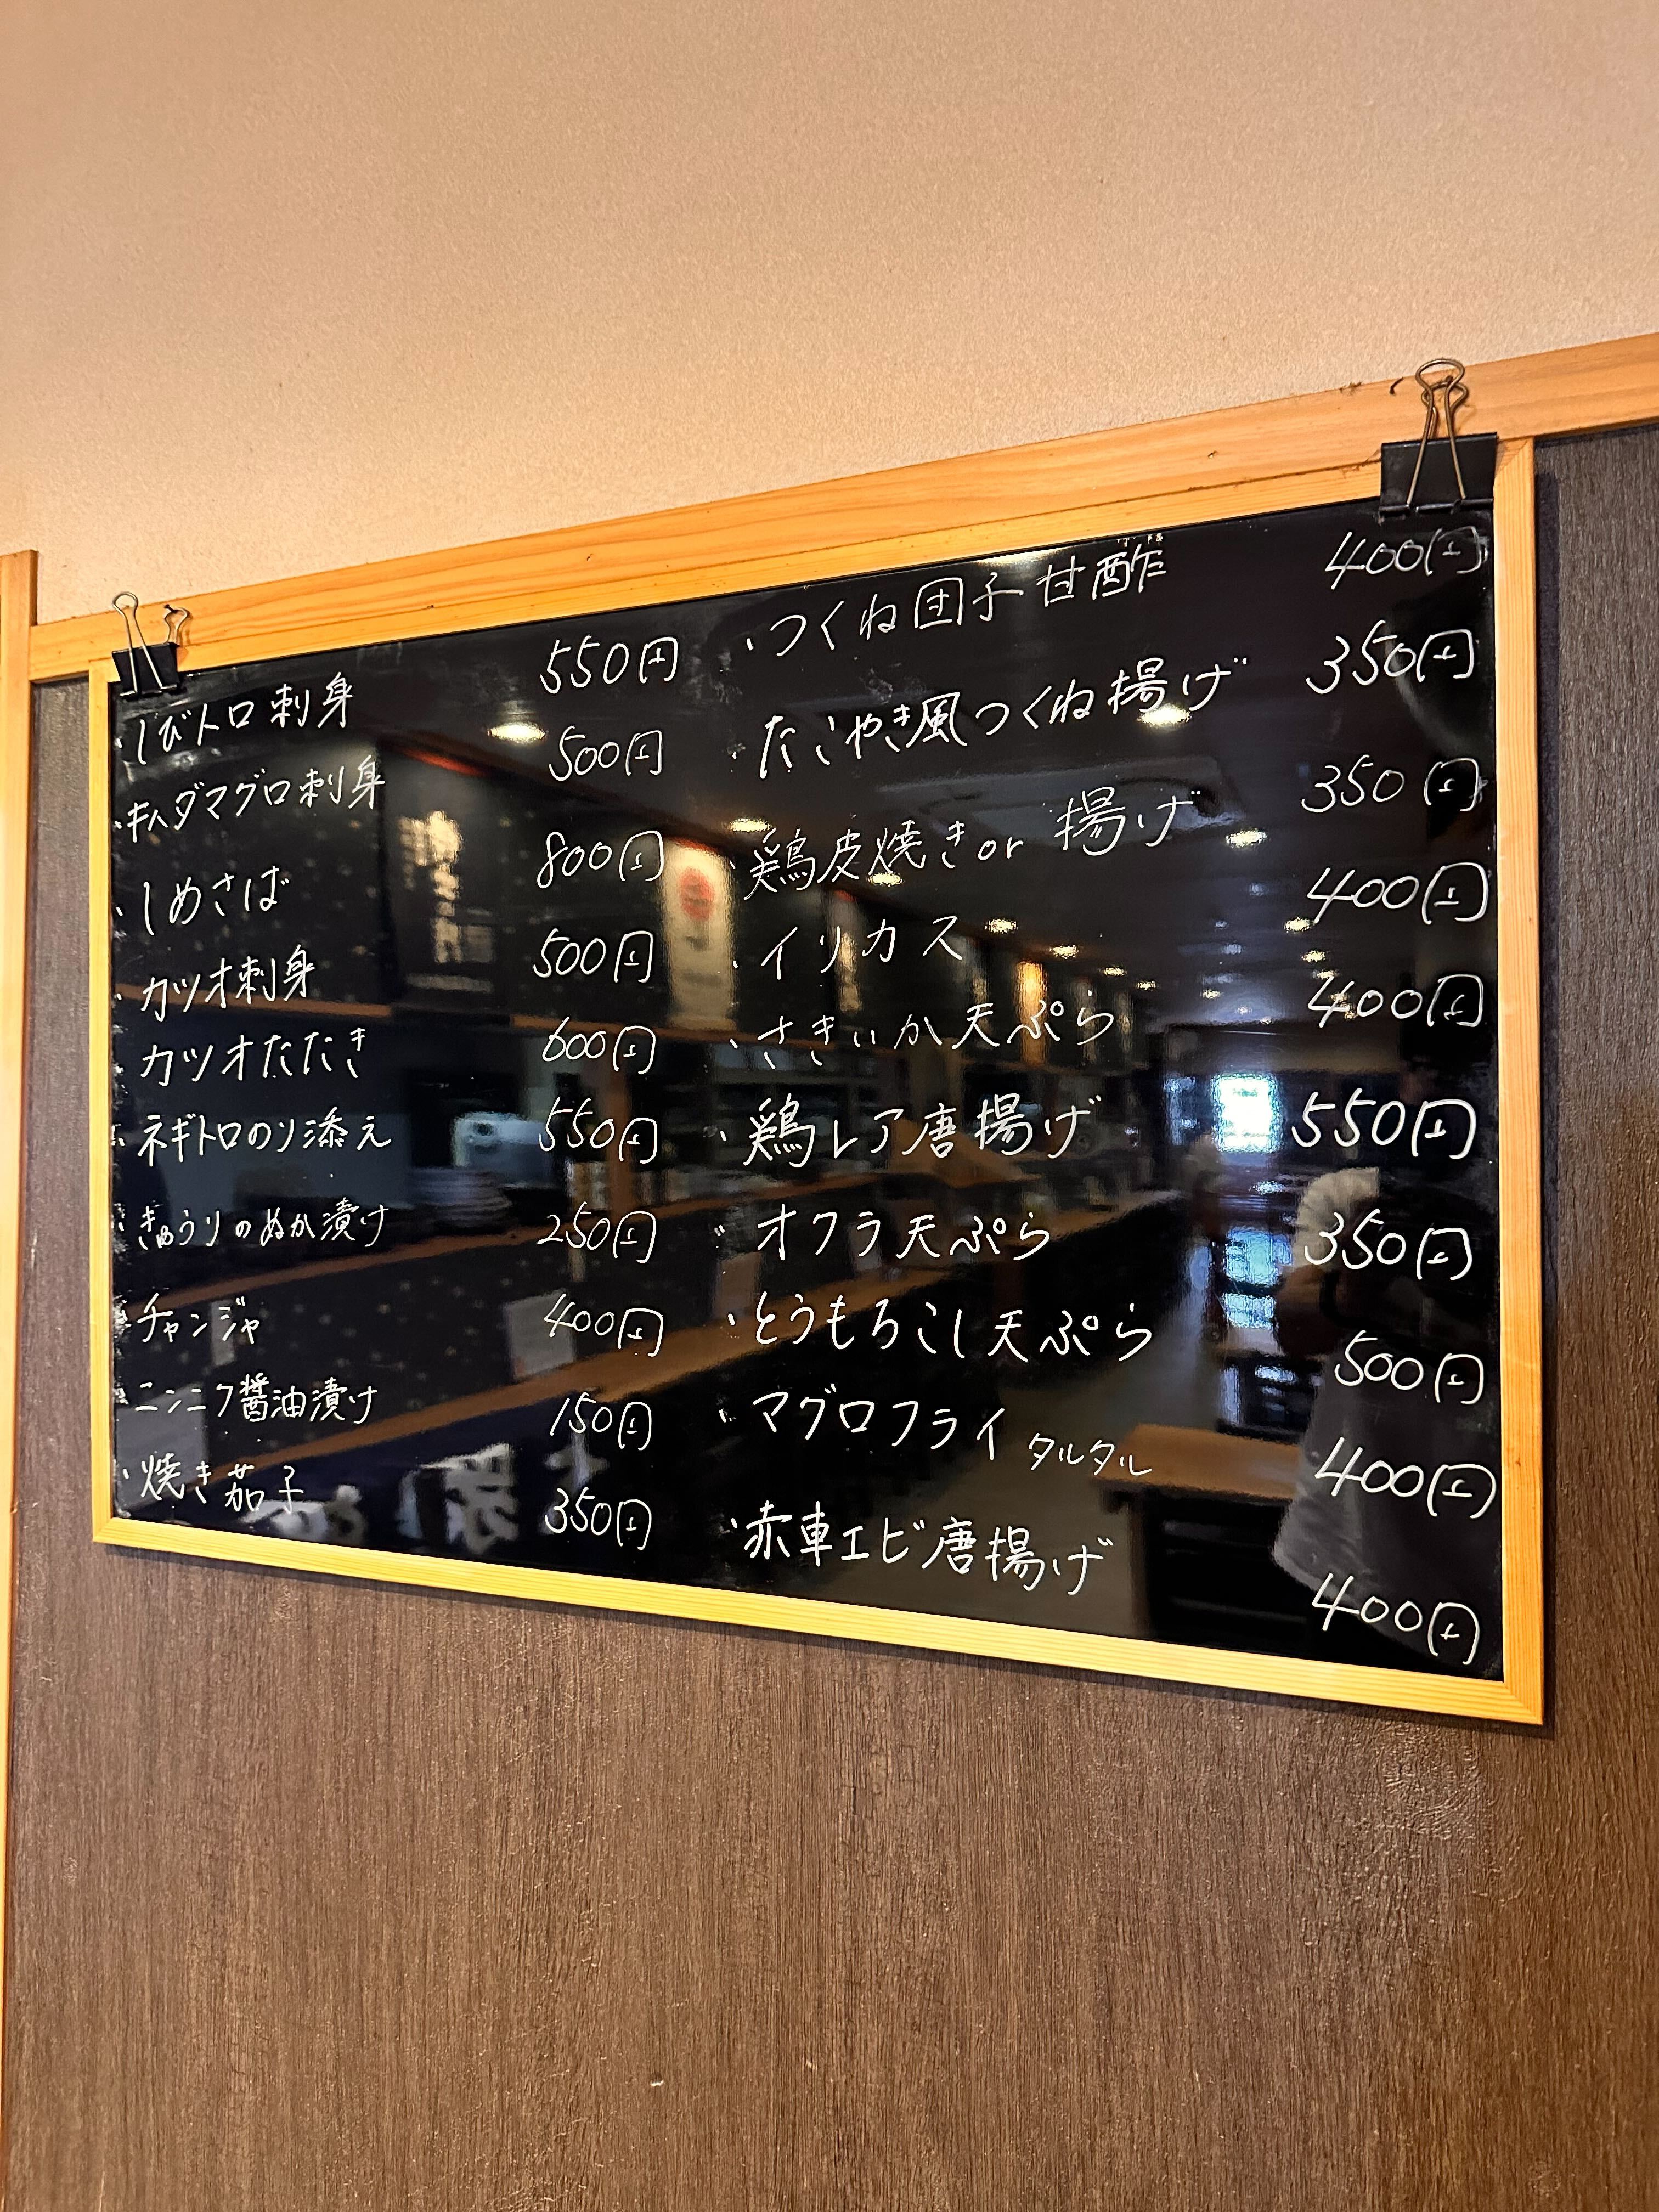 ・しびトロ刺身 550円
・キハダマグロ刺身 500円
・しめさば 800円
・カツオ刺身 500円
カツオたたき 600円
・ネギトロのり添え 550円
・きゅうりのぬか漬け 250円
・チャンジャ 400円
・ニンニク醤油漬け 150円
・焼き茄子 350円
・つくね団子甘酢 400円
・たこやき風つくね揚げ 350円
・鶏皮焼きor揚げ 350円
・イリカス 400円
・さきいか天ぷら 400円
・鶏レア唐揚げ 550円
・オクラ天ぷら 350円
・とうもろこし天ぷら 500円
・マグロフライタルタル 400円
・赤車エビ唐揚げ 400円